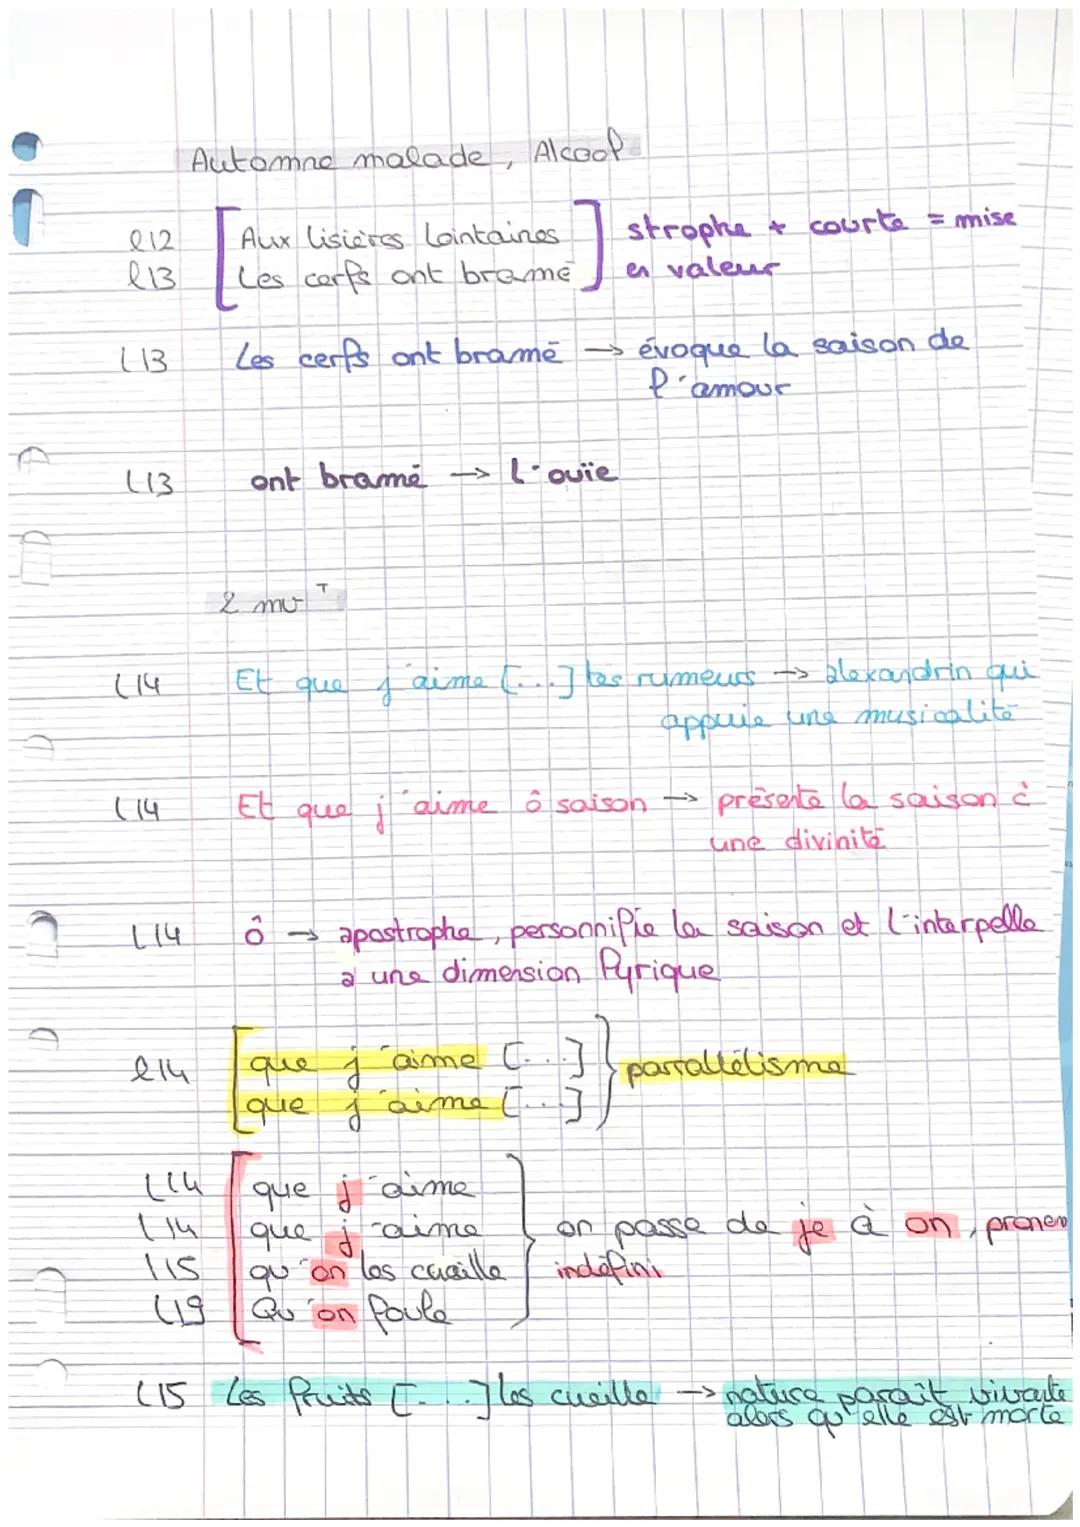 Automne malade, Alcool
l12 Aux lisières lointaines strophe + courte = mise
l13 Les cerfs ont bramé en valeur
L13 Les cerfs ont bramé → évoque la saison de
l'amour
L13 ont bramé → l'ouïe
2 mvT
L14 Et que j'aime [...] tes rumeurs → alexandrin qui
appuie une musicalité
L14 Et que j'aime ô saison → présente la saison c
une divinité
L14 ô → apostrophe, personnifie la saison et l'interpelle
a une dimension lyrique
l14 que j'aime [...] parrallélisme
que j'aime [...]
L14 que j'aime
L14 que j'aime on passe de je à on, pronom
L15 qu'on les cueille indéfini
L19 Qu'on foule
L15 Les fruits [...] les cueille → nature parait vivante
alors qu'elle est morte